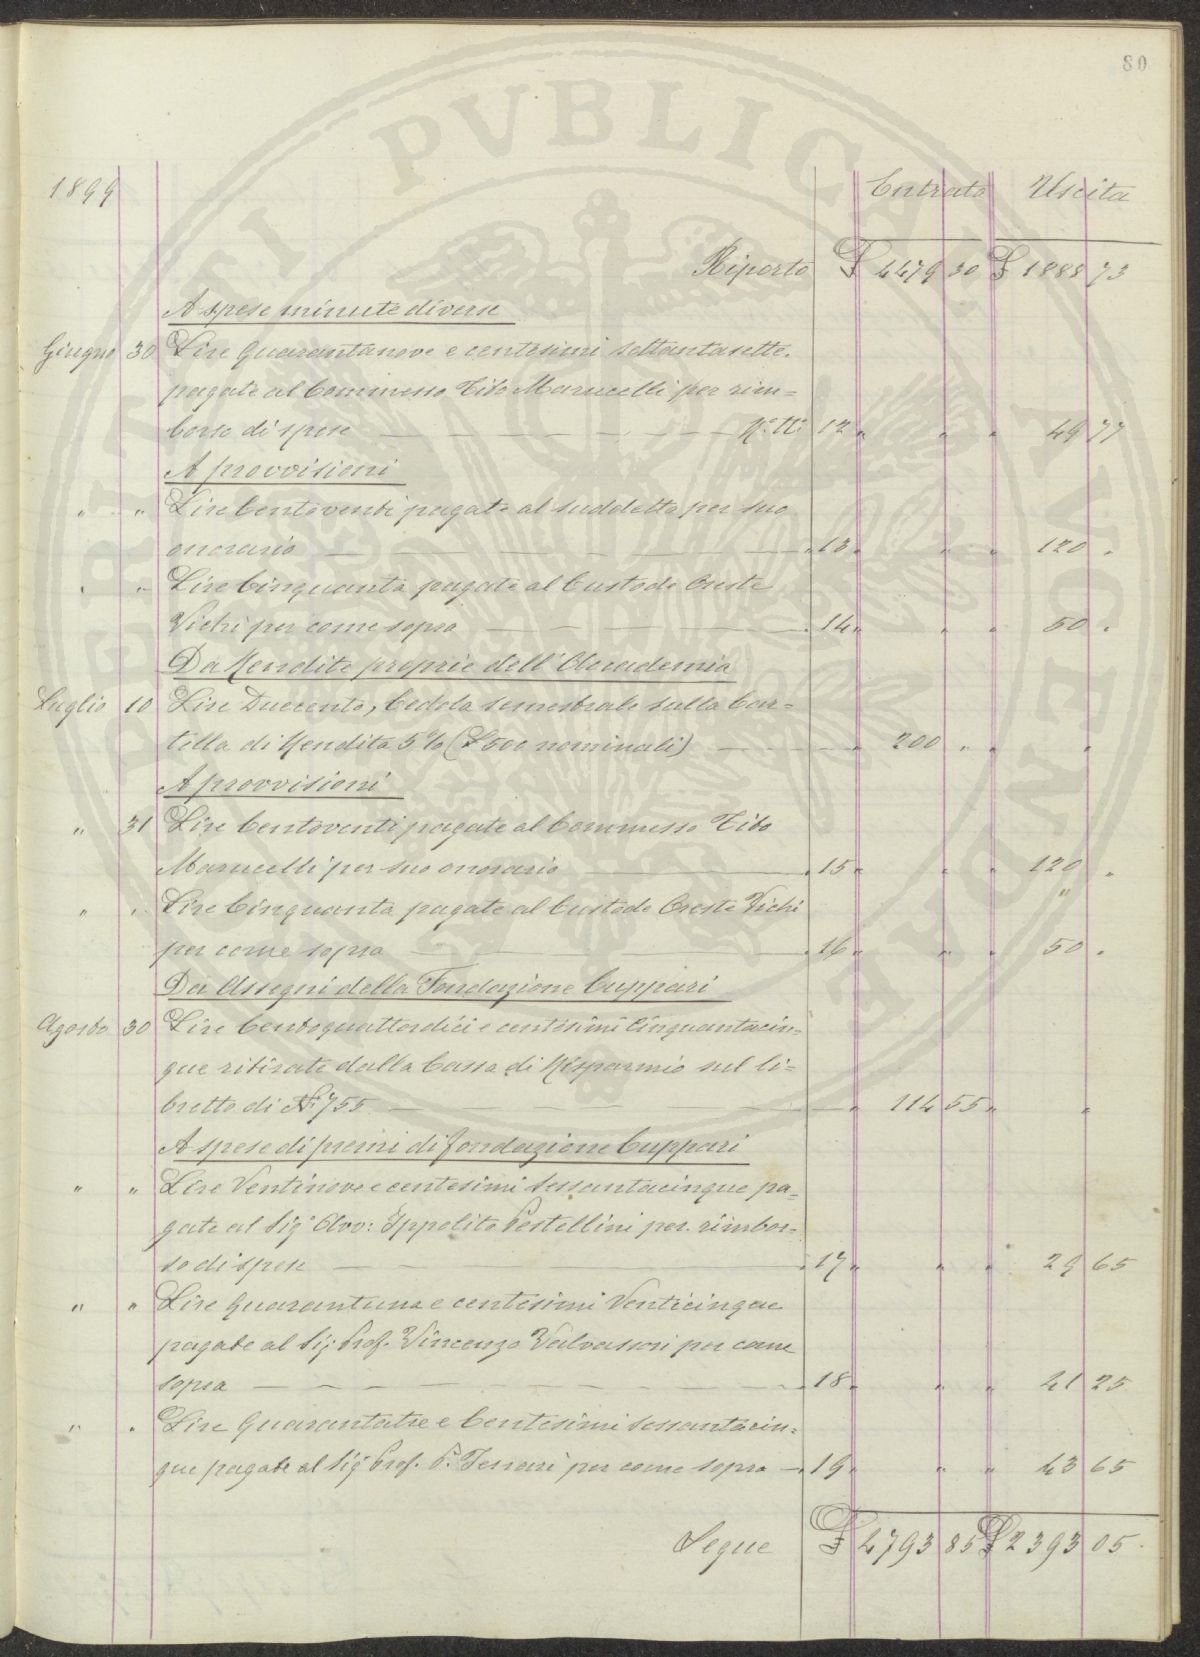 80
1899 Entrata Uscita
Riporto £ 4479 30 £ 1888 73
A spese minute diverse
Giugno 30 Lire Quarantanove e centesimi settantasette.
pagate al Commesso Tito Marucelli per rim=
borso di spese N.º tt.º 12 " " " 49 77
A provvisioni
" " Lire Centoventi pagate al suddetto per suo
onorario " 13 " " " 120 "
" " Lire Cinquanta pagate al Custode Oreste
Vichi per come sopra " 14 " " " 50 "
Da Rendite proprie dell'Accademia
Luglio 10 Lire Duecento, Cedola semestrale sulla Car=
tella di Rendita 5% (£ 500 nominali) " 200 " " "
A provvisioni
" 31 Lire Centoventi pagate al Commesso Tito
Marucelli per suo onorario " 15 " " " 120 "
" " Lire Cinquanta pagate al Custode Oreste Vichi "
per come sopra " 16 " " " 50 "
Da Assegni della Fondazione Cuppari
Agosto 30 Lire Centoquattordici e centesimi Cinquantacin=
que ritirate dalla Cassa di Risparmio sul li=
bretto di N.º 755 " 114 55 " "
A spese di premi di fondazione Cuppari
" " Lire Ventinove e centesimi Sessantacinque pa=
gate al Sig.º Avv: Ippolito Pestellini per rimbor=
so di spese " 17 " " " 29 65
" " Lire Quarantuna e centesimi Venticinque
pagate al Sig. Prof. Vincenzo Valvassori per come
sopra " 18 " " " 41 25
" " Lire Quarantatre e Centesimi sessantacin=
que pagate al Sig.º Prof. P. Ferrari per come sopra " 19 " " " 43 65
Segue £ 4793 85 £ 2393 05